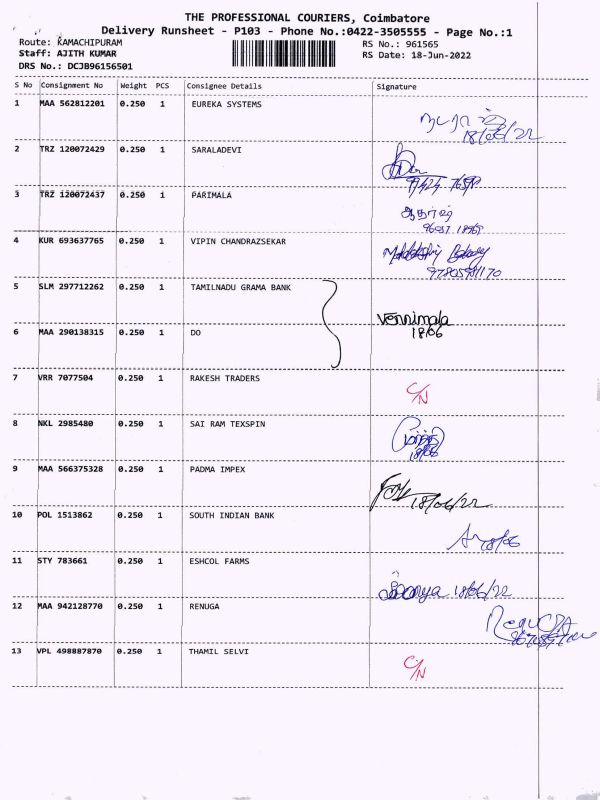 THE PROFESSIONAL COURIERS, Coimbatore
Delivery Runsheet - P103 - Phone No.:0422-3505555 - Page No.:1
Route: KAMACHIPURAM RS No.: 961565
Staff: AJITH KUMAR RS Date: 18-Jun-2022
DRS No.: DCJB96156501
S No Consignment No Weight PCS Consignee Details Signature
1 MAA 562812201 0.250 1 EUREKA SYSTEMS
18/06/22
2 TRZ 120072429 0.250 1 SARALADEVI
3 TRZ 120072437 0.250 1 PARIMALA
4 KUR 693637765 0.250 1 VIPIN CHANDRAZSEKAR
5 SLM 297712262 0.250 1 TAMILNADU GRAMA BANK
Vennimala
18/06
6 MAA 290138315 0.250 1 DO
7 VRR 7077504 0.250 1 RAKESH TRADERS
C/N
8 NKL 2985480 0.250 1 SAI RAM TEXSPIN
18/06
9 MAA 566375328 0.250 1 PADMA IMPEX
18/06/22
10 POL 1513862 0.250 1 SOUTH INDIAN BANK
11 STY 783661 0.250 1 ESHCOL FARMS
18/06/22
12 MAA 942128770 0.250 1 RENUGA
13 VPL 498887870 0.250 1 THAMIL SELVI
C/N